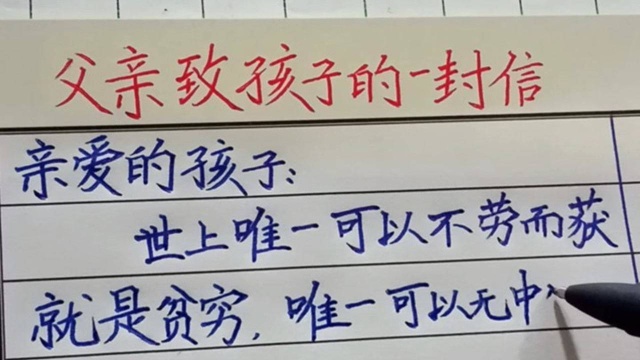 父亲致孩子的一封信
亲爱的孩子:
世上唯一可以不劳而获
就是贫穷,唯一可以无中